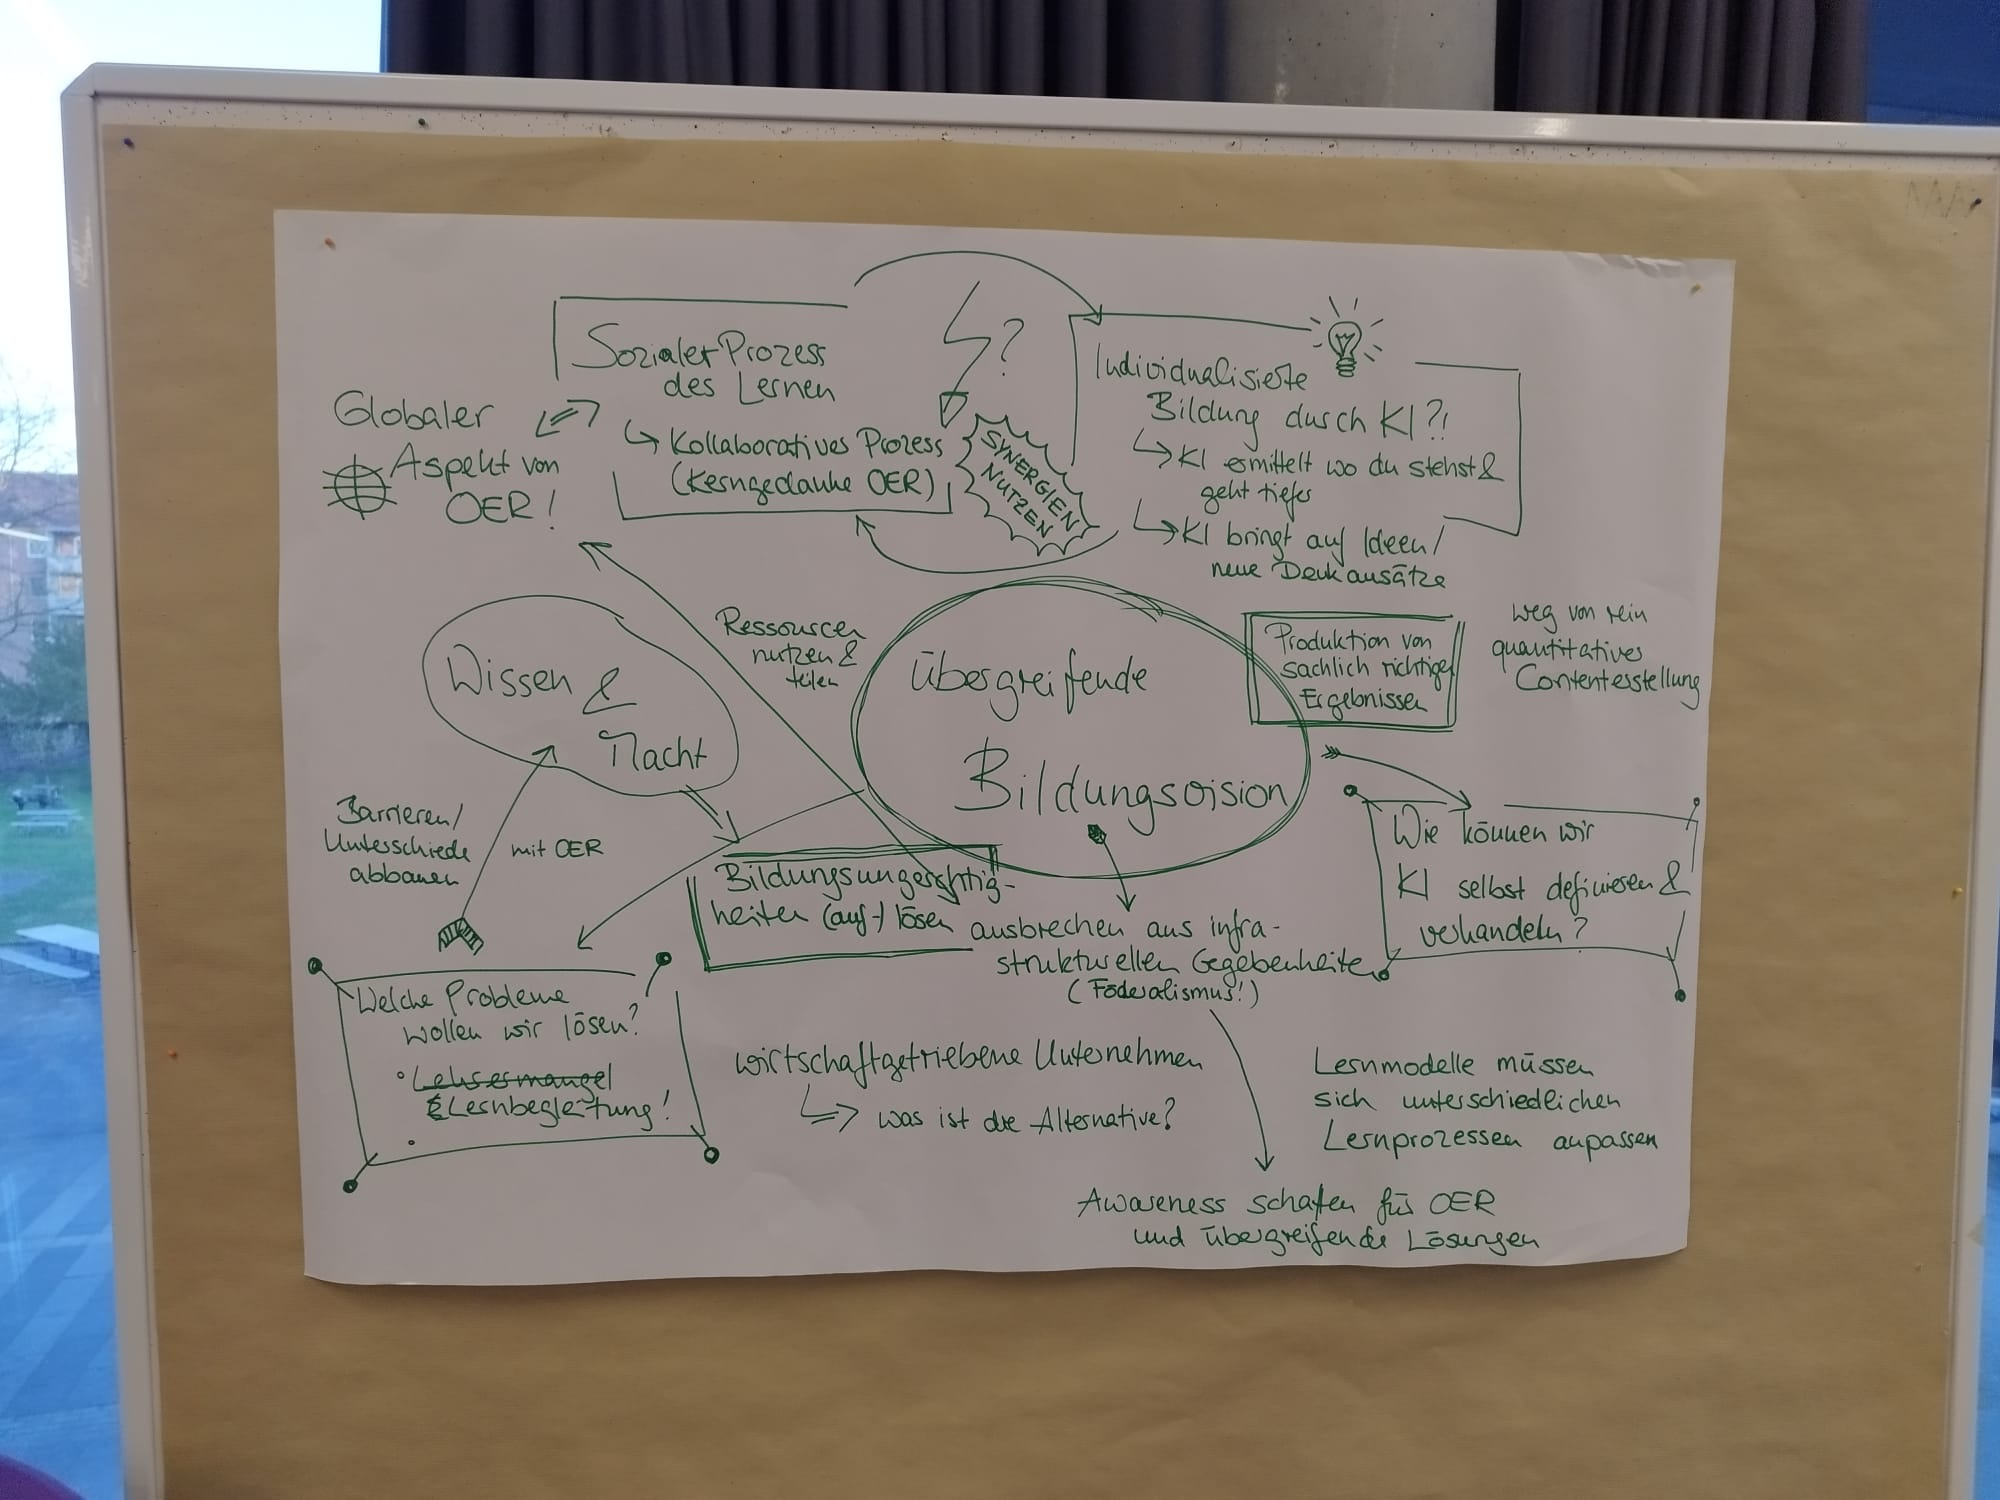 Sozialer Prozess
des Lernen
↳ Kollaboratives Prozess
(Kerngedanke OER)
?
SYNERGIEN
NUTZEN
Individualisierte
Bildung durch KI?!
↳ KI ermittelt wo du stehst &
geht tiefer
↳ KI bringt auf Ideen/
neue Denkansätze
Globaler
Aspekt von
OER!
Wissen &
Macht
Ressourcen
nutzen &
teilen
übergreifende
Bildungsvision
Produktion von
sachlich richtigen
Ergebnissen
weg von rein
quantitativer
Contenterstellung
Barrieren/
Unterschiede
abbauen
mit OER
Bildungsungerechtig-
heiten (auf-) lösen
ausbrechen aus infra-
strukturellen Gegebenheiten
(Föderalismus!)
Wie können wir
KI selbst definieren &
verhandeln?
Welche Probleme
wollen wir lösen?
• Lehrermangel
& Lernbegleitung!
•
wirtschaftgetriebene Unternehmen
↳ was ist die Alternative?
Lernmodelle müssen
sich unterschiedlichen
Lernprozessen anpassen
Awareness schaffen für OER
und übergreifende Lösungen